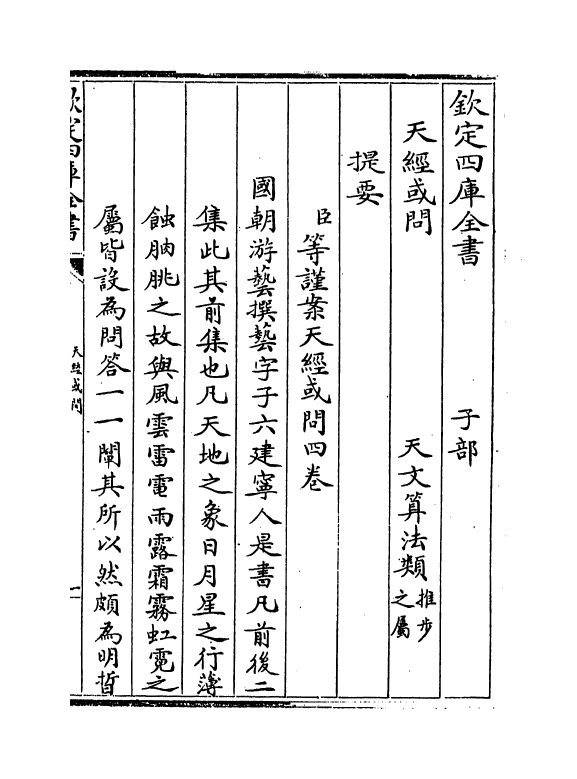 欽定四庫全書 子部
天經或問 天文算法類推步之屬
提要
臣等謹案天經或問四卷
國朝游藝撰藝字子六建寧人是書凡前後二
集此其前集也凡天地之象日月星之行薄
蝕朒朓之故與風雲雷電雨露霜霧虹霓之
屬皆設為問答一一闡其所以然頗為明晳
欽定四庫全書 天經或問 一